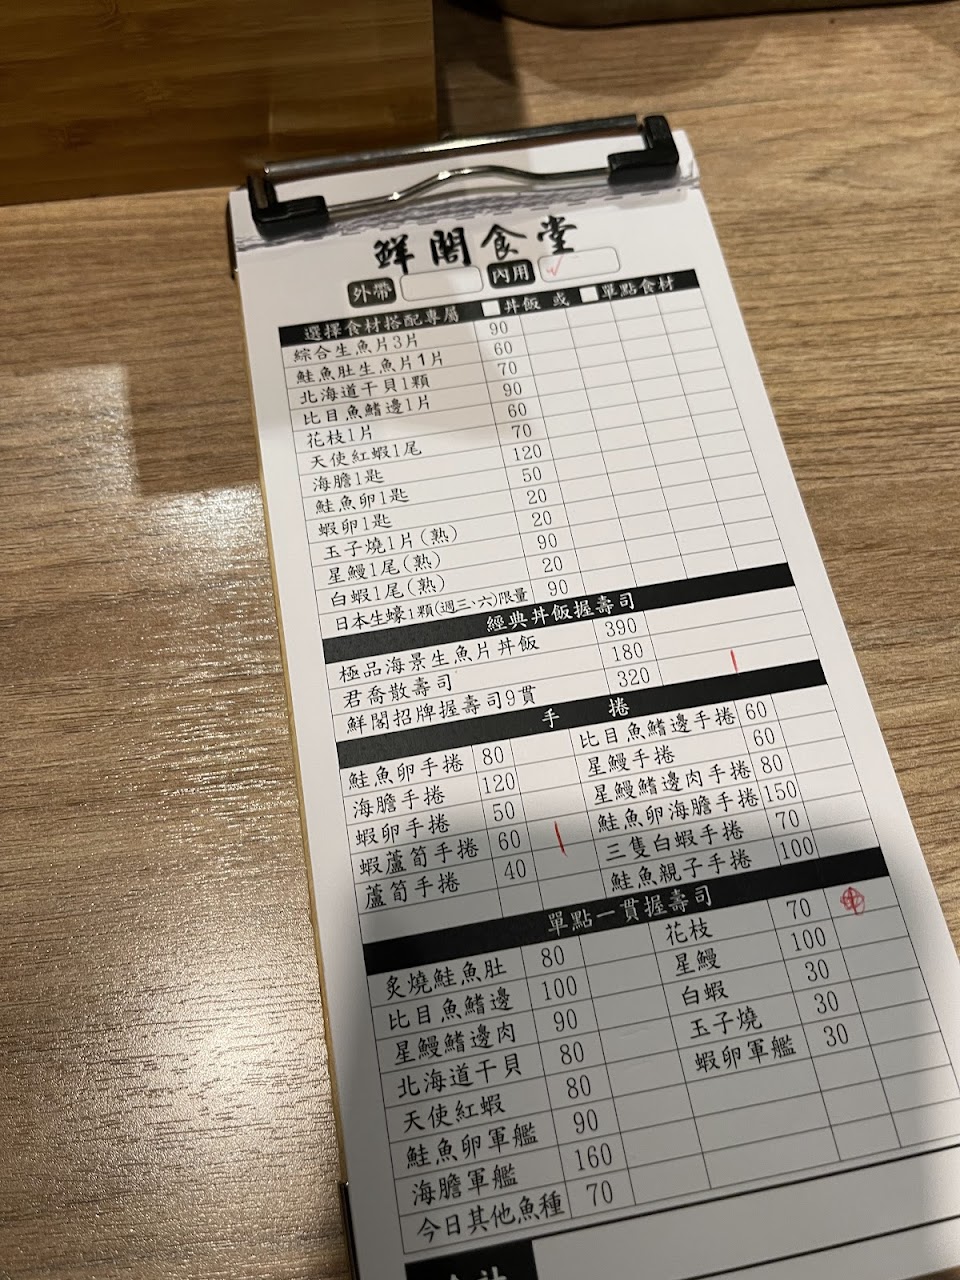 鮮閣食堂
外帶 內用 ✓
選擇食材搭配專屬 丼飯 或 單點食材
綜合生魚片3片 90
鮭魚肚生魚片1片 60
北海道干貝1顆 70
比目魚鰭邊1片 90
花枝1片 60
天使紅蝦1尾 70
海膽1匙 120
鮭魚卵1匙 50
蝦卵1匙 20
玉子燒1片(熟) 20
星鰻1尾(熟) 90
白蝦1尾(熟) 20
日本生蠔1顆(週三、六)限量 90
經典丼飯握壽司
極品海景生魚片丼飯 390
君喬散壽司 180
鮮閣招牌握壽司9貫 320 1
手捲
鮭魚卵手捲 80 比目魚鰭邊手捲 60
海膽手捲 120 星鰻手捲 60
蝦卵手捲 50 星鰻鰭邊肉手捲 80
蝦蘆筍手捲 60 1 鮭魚卵海膽手捲 150
蘆筍手捲 40 三隻白蝦手捲 70
鮭魚親子手捲 100
單點一貫握壽司
炙燒鮭魚肚 80 花枝 70
比目魚鰭邊 100 星鰻 100
星鰻鰭邊肉 90 白蝦 30
北海道干貝 80 玉子燒 30
天使紅蝦 80 蝦卵軍艦 30
鮭魚卵軍艦 90
海膽軍艦 160
今日其他魚種 70